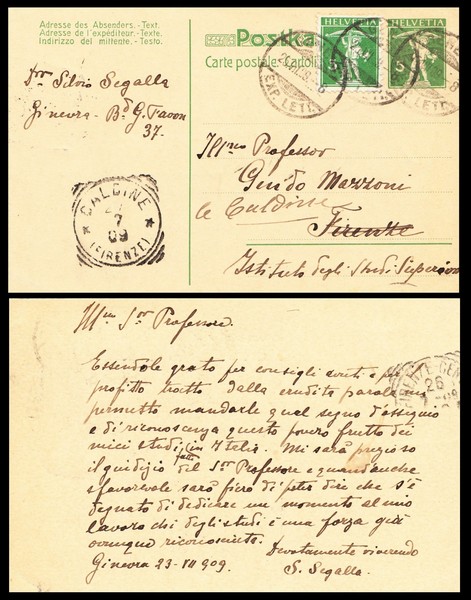 Adresse des Absenders. - Text.
Adresse de l'expéditeur. - Texte.
Indirizzo del mittente. - Testo.
Postka
Carte postale. Cartoli
HELVETIA
5
HELVETIA
5
EXP. LETT.
Dr Silvio Segalla
Ginevra - Bd G. Favon
37.
Illmo Professor
Guido Mazzoni
le Caldine
Firenze
Istituto degli Studi Superiori
CALDINE
7
09
(FIRENZE)
Illmo Sor Professore.
Essendole grato per consigli avuti e per
profitto tratto dalla erudita parola, mi
permetto mandarle qual segno d'ossequio
e di riconoscenza questo povero frutto dei
miei studi fatti in Italia. Mi sarà prezioso
il giudizio del Sor Professore e quand'anche
sfavorevole sarò fiero di poter dire che s'è
degnato di dedicare un momento al mio
lavoro chi degli studi è una forza già
ovunque riconosciuta.
Devotamente riverendo
Ginevra 23-VII 909.
S. Segalla.
26